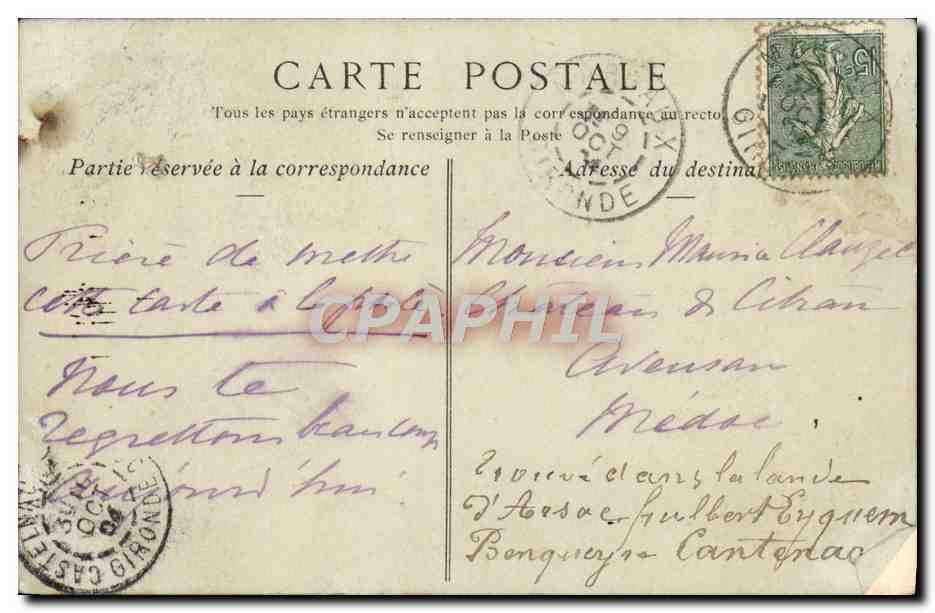 CARTE POSTALE
Tous les pays étrangers n'acceptent pas la correspondance au recto
Se renseigner à la Poste
Partie réservée à la correspondance
Adresse du destina
15c
GIR
GIRONDE
OCT
Prière de mettre
cette carte à la poste
Nous te
regrettons beaucoup
aujourd'hui
Monsieur Maurice Clauzel
Château de Citran
Avensan
Médoc
Trouvé dans la lande
d'Arsac Gulbert Eyquem
Cantenac
CASTELNAU
GIRONDE
OCT
04
CPAPHIL